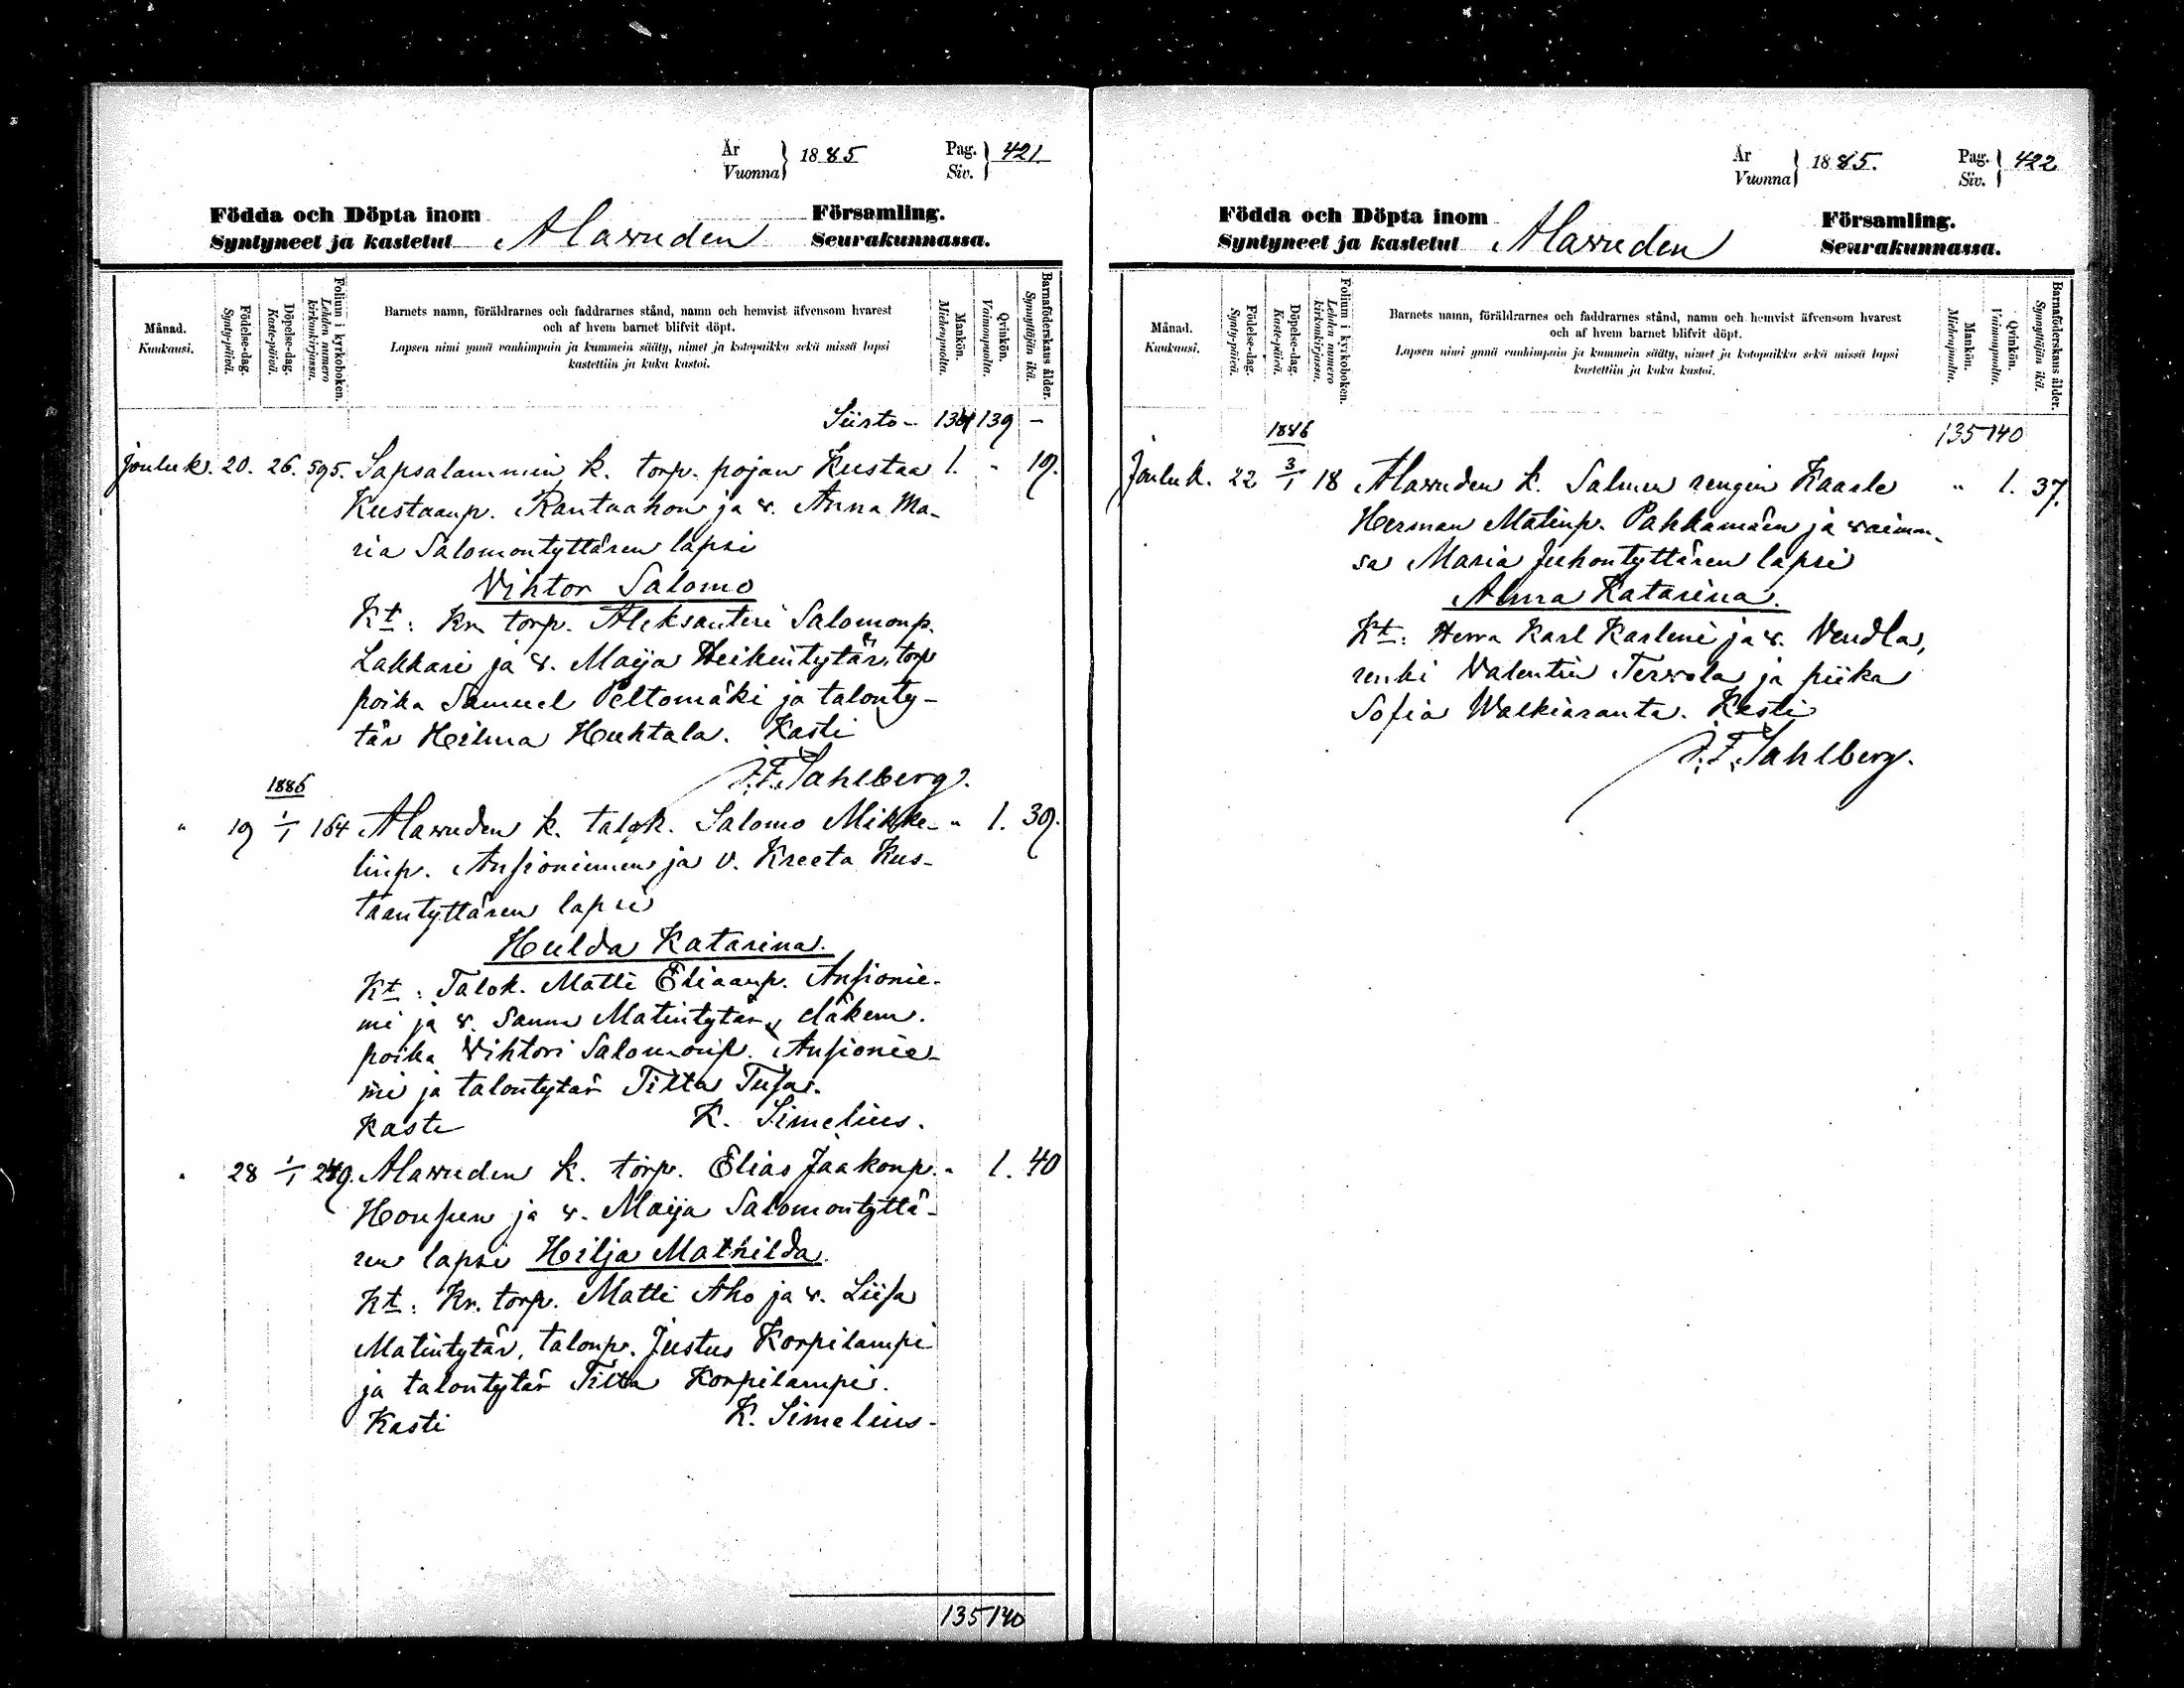 År
Vuonna } 1885 Pag.
Siv. } 421
Födda och Döpta inom
Syntyneet ja kastetut Alavuden Församling.
Seurakunnassa.
Månad.
Kuukausi.
Födelse-dag.
Synty-päivä.
Döpelse-dag.
Kaste-päivä.
Folium i kyrkoboken.
Lehden numero
kirkonkirjassa.
Barnets namn, föräldrarnes och faddrarnes stånd, namn och hemvist äfvensom hvarest
och af hvem barnet blifvit döpt.
Lapsen nimi ynnä vanhimpain ja kummein sääty, nimet ja kotopaikka sekä missä lapsi
kastettiin ja kuka kastoi.
Mankön.
Miehenpuolta.
Qvinkön.
Vaimonpuolta.
Barnaföderskans ålder.
Synnyttäjän ikä.
Siirto - 134 139 -
Jouluk. 20. 26. 595. Sapsalammin k. torp. pojan Kustaa 1. - 19.
Kustaanp. Rantaahon ja v. Anna Ma-
ria Salomontyttären lapsi
Vihtor Salomo
Kt: Kr. torp. Aleksanteri Salomonp.
Lakkari ja v. Maija Heikintytär, torp
poika Samuel Peltomäki ja talonty-
tär Hilma Huhtala. Kasti
J.F. Sahlberg.
1886
" 19 1/1 164 Alavuden k. talok. Salomo Mikke- " 1. 39.
linp. Ansioniemen ja v. Kreeta Kus-
taantyttären lapsi
Hulda Katarina.
Kt: Talok. Matti Eliaanp. Ansionie-
mi ja v. Sanna Matintytär, eläkem.
poika Vihtori Salomonp. Ansionie-
mi ja talontytär Tilta Tusa.
Kasti K. Simelius.
" 28 1/1 249. Alavuden k. torp. Elias Jaakonp. " 1. 40
Honsun ja v. Maija Salomontyttä-
ren lapsi Hilja Mathilda.
Kt: Kr. torp. Matti Aho ja v. Liisa
Matintytär, talonp. Justus Korpilampi
ja talontytär Tilta Korpilampi.
Kasti K. Simelius.
135 140
År
Vuonna } 1885. Pag.
Siv. } 422
Födda och Döpta inom
Syntyneet ja kastetut Alavuden Församling.
Seurakunnassa.
Månad.
Kuukausi.
Födelse-dag.
Synty-päivä.
Döpelse-dag.
Kaste-päivä.
Folium i kyrkoboken.
Lehden numero
kirkonkirjassa.
Barnets namn, föräldrarnes och faddrarnes stånd, namn och hemvist äfvensom hvarest
och af hvem barnet blifvit döpt.
Lapsen nimi ynnä vanhimpain ja kummein sääty, nimet ja kotopaikka sekä missä lapsi
kastettiin ja kuka kastoi.
Mankön.
Miehenpuolta.
Qvinkön.
Vaimonpuolta.
Barnaföderskans ålder.
Synnyttäjän ikä.
1886 135 140
Jouluk. 22 3/1 18 Alavuden k. Salmen rengin Kaarle " 1. 37.
Herman Matinp. Pahkamäen ja vaimon-
sa Maria Juhontyttären lapsi
Alma Katarina.
Kt: Herra Karl Karleni ja v. Vendla,
renki Valentin Tervola ja piika
Sofia Walkiaranta. Kasti
J.F. Sahlberg.